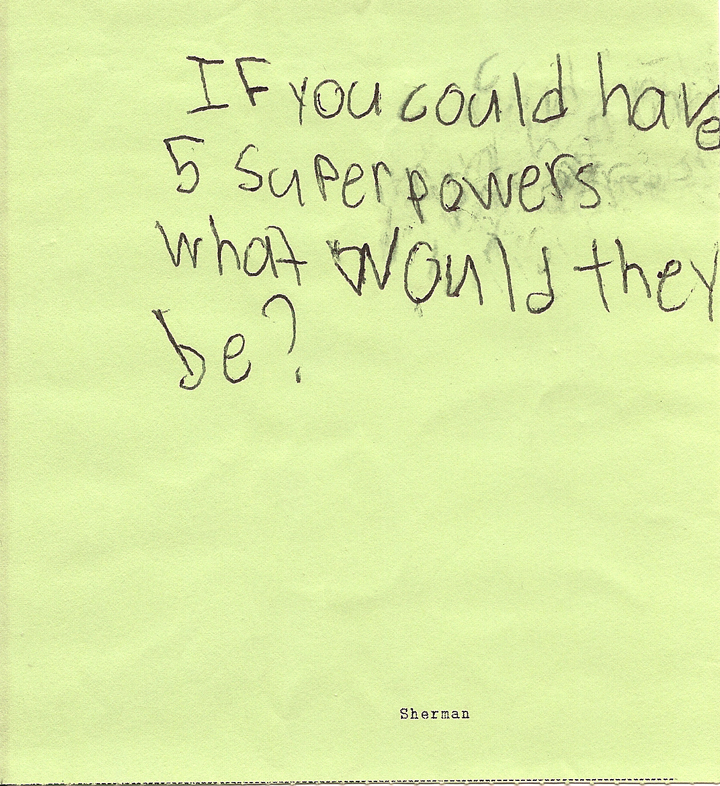 IF you could have
5 superpowers
what would they
be?
Sherman